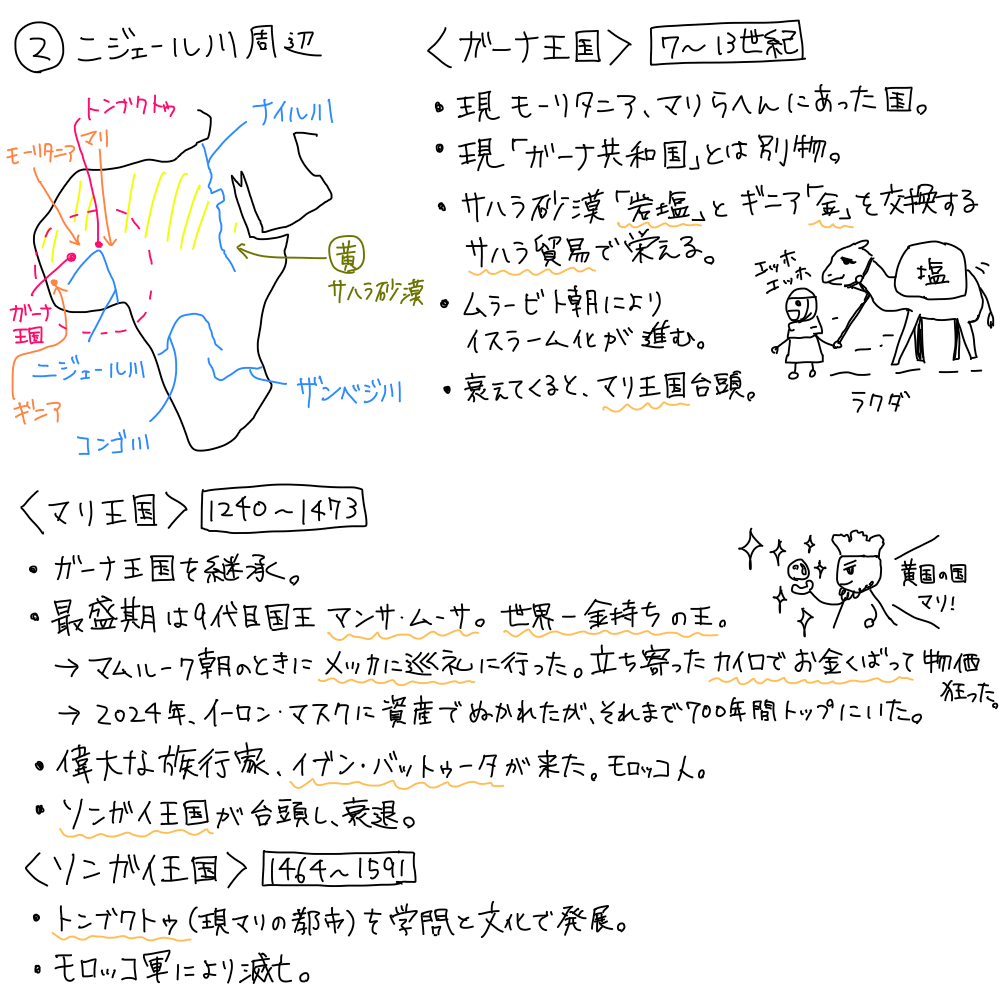 ② ニジェール川周辺
トンブクトゥ
ナイル川
モーリタニア
マリ
黄
サハラ砂漠
ガーナ
王国
ニジェール川
ギニア
コンゴ川
ザンベジ川
〈ガーナ王国〉 7〜13世紀
・現 モーリタニア、マリらへんにあった国。
・現「ガーナ共和国」とは別物。
・サハラ砂漠「岩塩」とギニア「金」を交換する
サハラ貿易で栄える。
・ムラービト朝により
イスラーム化が進む。
・衰えてくると、マリ王国台頭。
エッホ
エッホ
塩
ラクダ
〈マリ王国〉 1240〜1473
・ガーナ王国を継承。
・最盛期は9代目国王 マンサ・ムーサ。世界一金持ちの王。
→ マムルーク朝のときにメッカに巡礼に行った。立ち寄ったカイロでお金くばって物価
狂った。
→ 2024年、イーロン・マスクに資産でぬかれたが、それまで700年間トップにいた。
・偉大な旅行家、イブン・バットゥータが来た。モロッコ人。
・ソンガイ王国が台頭し、衰退。
黄国の国
マリ!
〈ソンガイ王国〉 1464〜1591
・トンブクトゥ(現マリの都市)を学問と文化で発展。
・モロッコ軍により滅亡。